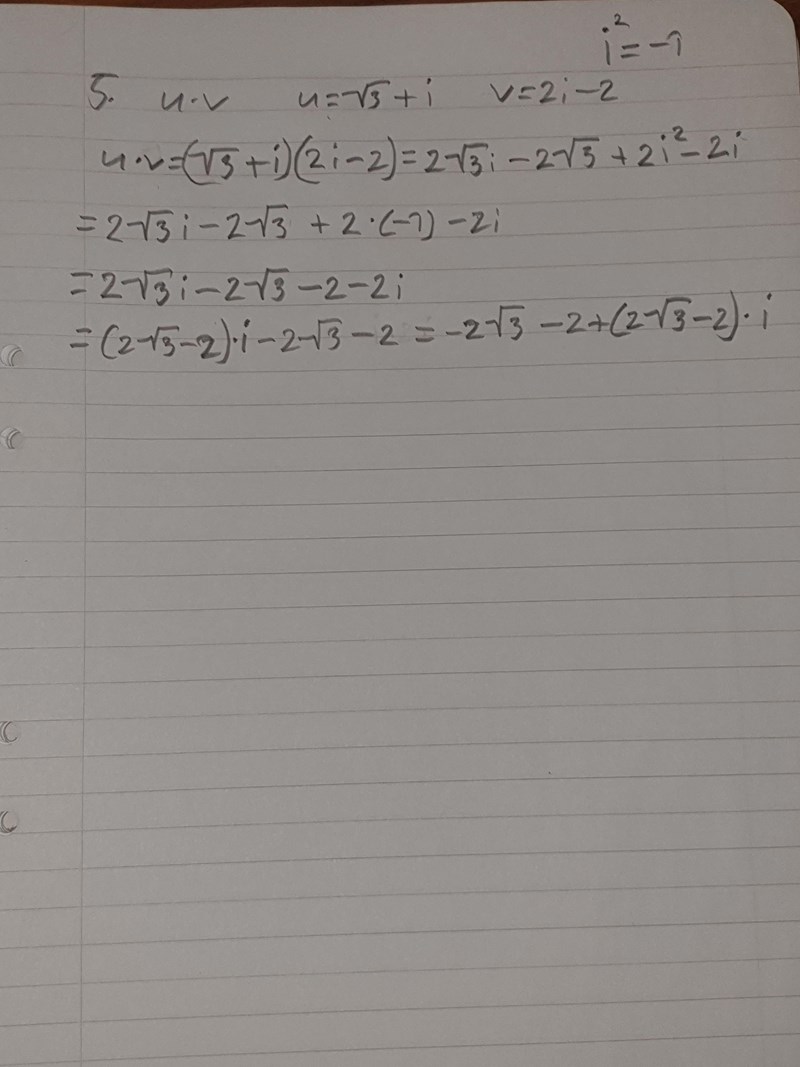 i² = -1
5. u·v u=√3+i v=2i-2
u·v=(√3+i)(2i-2)=2√3i-2√3+2i²-2i
=2√3i-2√3+2·(-1)-2i
=2√3i-2√3-2-2i
=(2√3-2)·i-2√3-2=-2√3-2+(2√3-2)·i